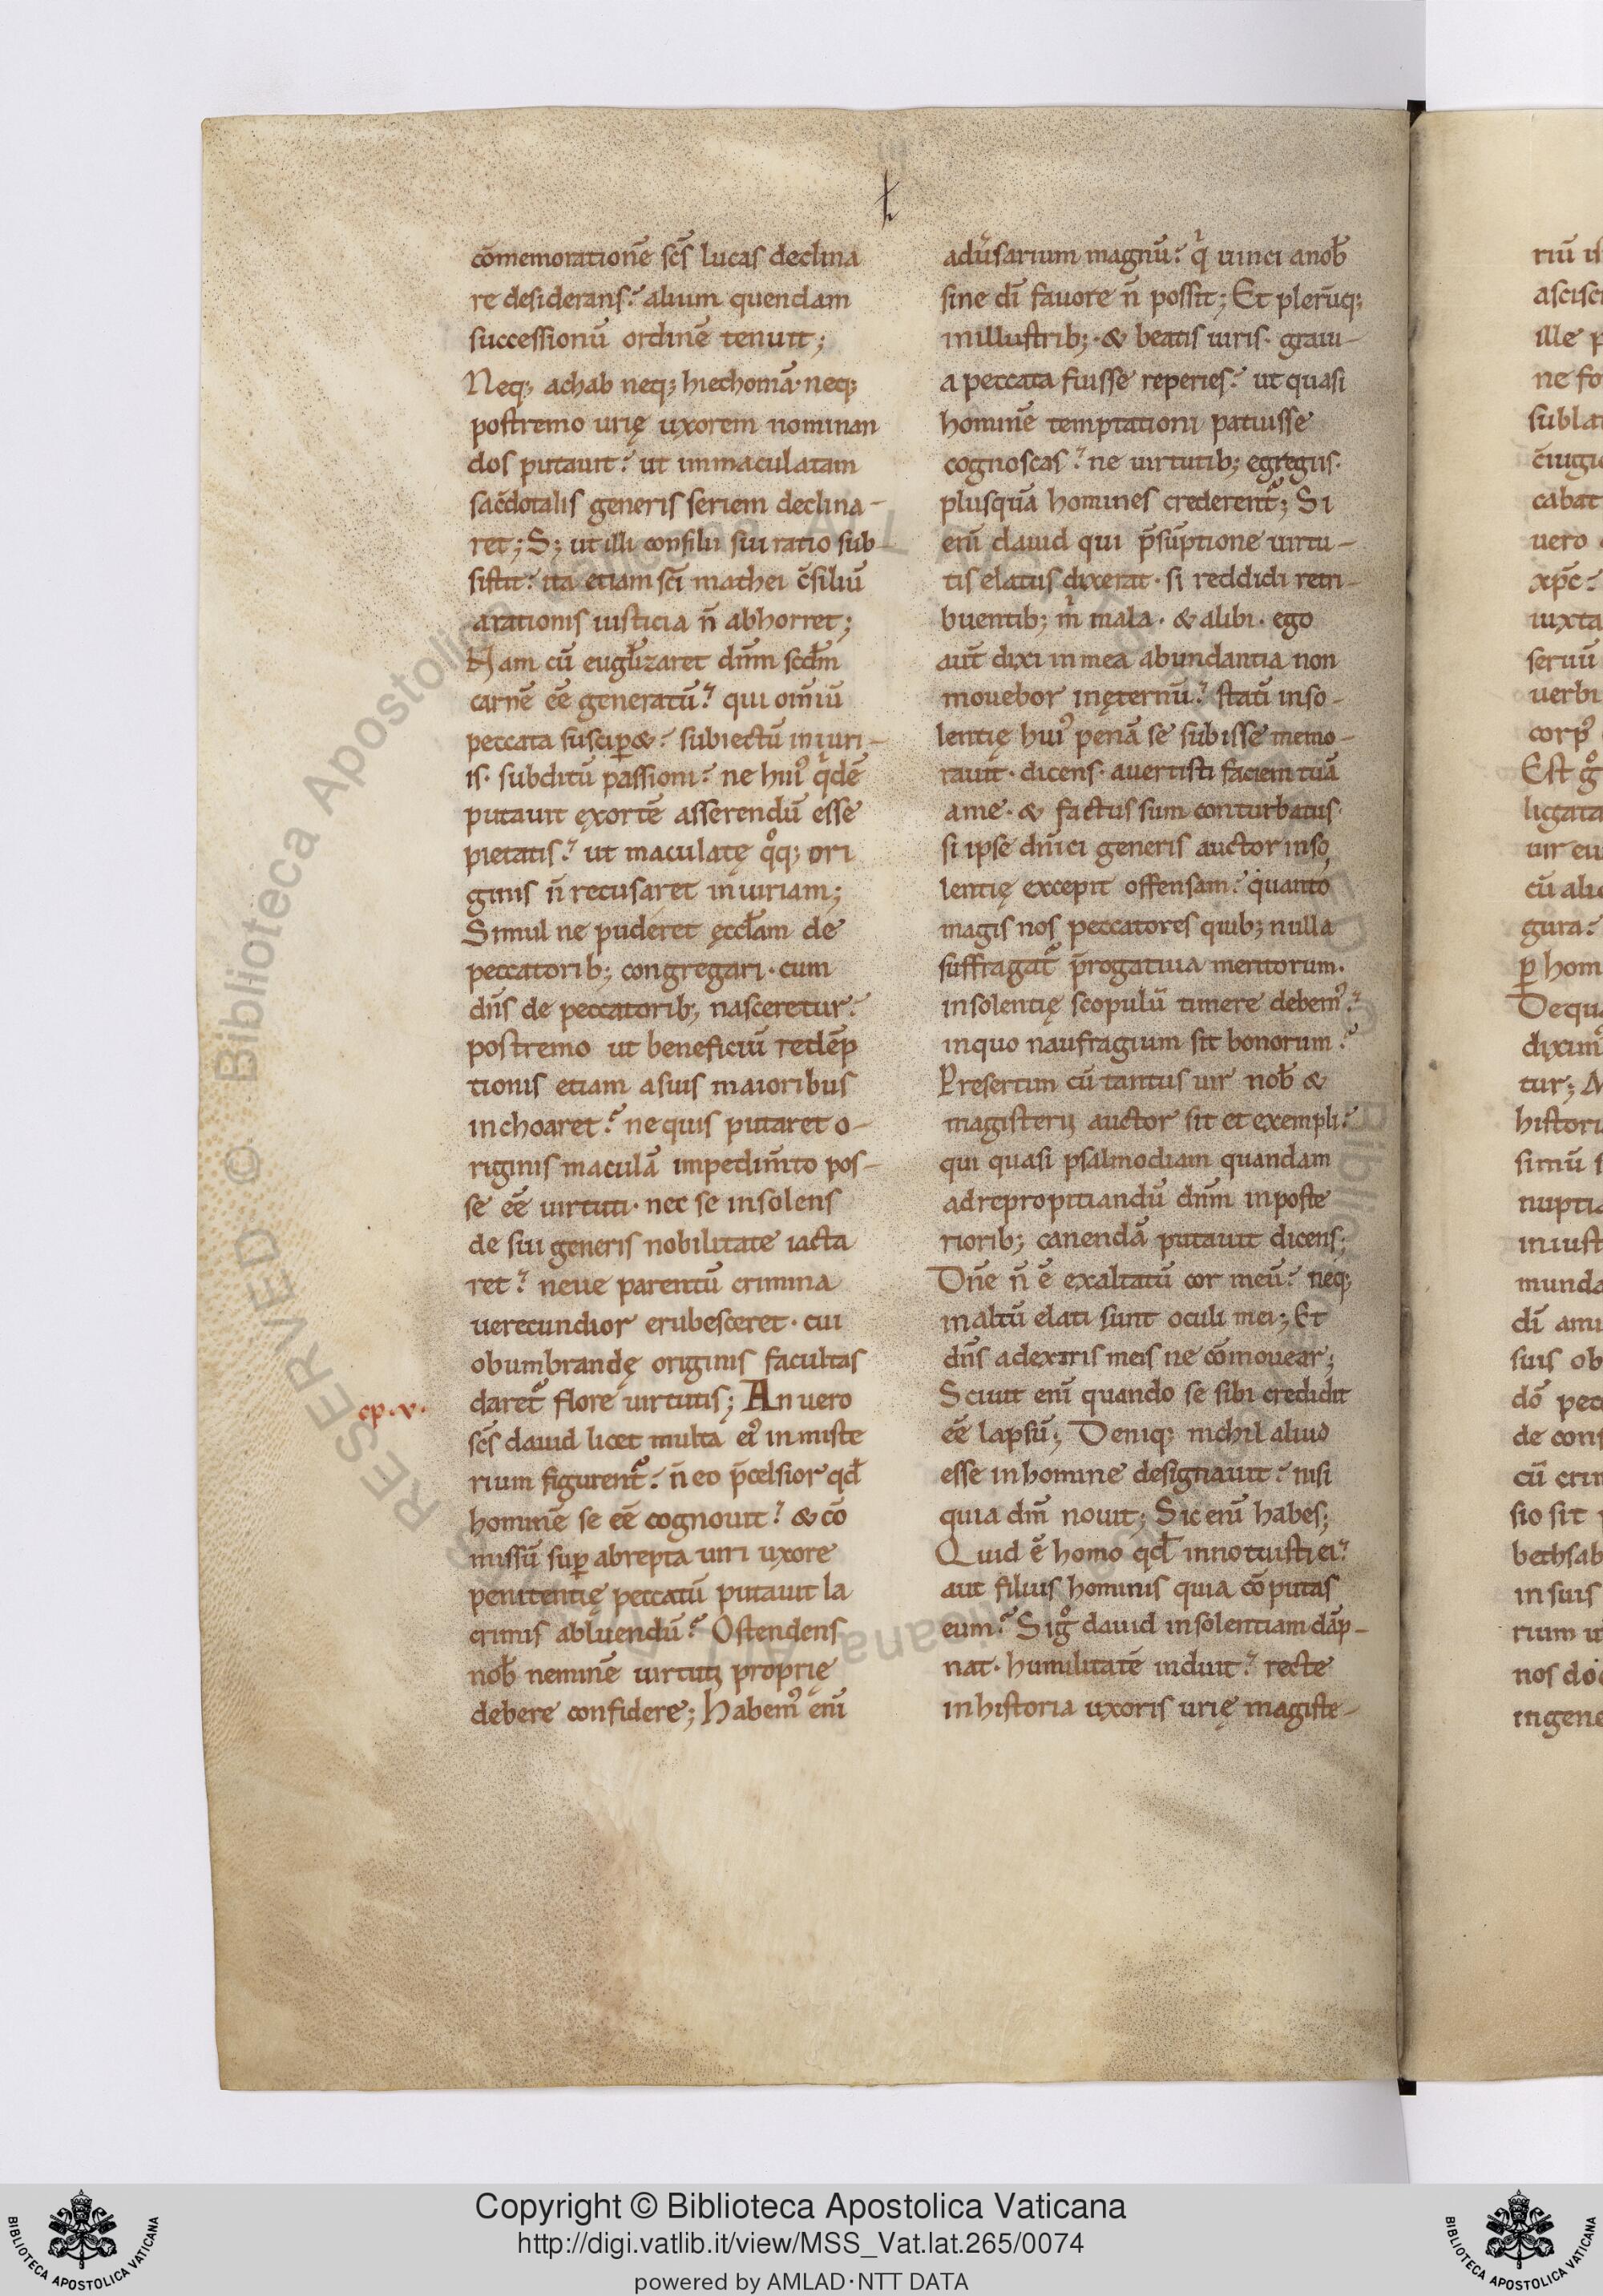 cōmemorationē scs̄ lucas declina
re desiderans? alium quendam
successionū ordinē tenuit;
Neq; achab neq; hiechomā· neq;
postremo urię uxorem nominan
dos putauit? ut immaculatam
sac̄dotalis generis seriem declina-
ret; S; ut illi consilii sui ratio sub-
sistit? ita etiam sc̄i mathei c̄siliū
arationis iusticia n̄ abhorret;
Nam cū eugl̄izaret dn̄m scd̄m
carnē ēe generatū? qui omniū
peccata suscip&? subiectū iniuri-
is· subditū passioni? ne hui' qͥdē
putauit exortē asserendū esse
pietatis? ut maculatę qͦq; ori
ginis n̄ recusaret iniuriam;
Simul ne puderet ęccl̄am de
peccatorib; congregari· cum
dn̄s de peccatorib; nasceretur?
postremo ut beneficiū redēp
tionis etiam asuis maioribus
inchoaret? nequis putaret o-
riginis maculā impedim̄to pos-
se ēe uirtuti· nec se insolens
de sui generis nobilitate iacta
ret? neue parentū crimina
uerecundior erubesceret· cui
obumbrandę originis facultas
daret᷑ flore uirtutis; An uero
cp. v.
scs̄ dauid licet multa ei' inmiste
rium figurent᷑? n̄ eo p̄celsior qd̄
hominē se ēe cognouit? & cō
missū suꝑ abrepta uiri uxore
penitentię peccatū putauit la
crimis abluendū? Ostendens
nob̄ neminē uirtuti proprię
debere confidere; Habem' enī
adu̓sarium magnū? qͥ uinci anob̄
sine dī fauore n̄ possit; Et plerūq;
inillustrib;· & beatis uiris· graui-
a peccata fuisse reperies? ut quasi
hominē temptationi patuisse
cognoscas? ne uirtutib; egregiis·
plusquā homines crederent᷑; Si
enī dauid qui p̄sūptione uirtu-
tis elatus dixerat· si reddidi retri-
buentib; mͥ mala· & alibi· ego
aut̄ dixi inmea abundantia non
mouebor inęternū? statū inso-
lentię hui' penā se subisse memo-
rauit· dicens· auertisti faciem tuā
ame· & factus sum conturbatus·
si ipse dn̄ici generis auctor inso
lentię excepit offensam? quanto
magis nos peccatores quib; nulla
suffragat᷑ p̄rogatiua meritorum·
insolentię scopulū timere debem'?
inquo naufragium sit bonorum?
Presertim cū tantus uir nob̄ &
magisterij auctor sit et exempli?
qui quasi psalmodiam quandam
adrepropitiandū dn̄m inposte
riorib; canendā putauit dicens;
Dn̄e n̄ ē exaltatū cor meū? neq;
inaltū elati sunt oculi mei; Et
dn̄s adextris meis ne cōmouear;
Sciuit enī quando se sibi credidit
ēe lapsū; Deniq; nichil aliud
esse inhomine designauit? nisi
quia dm̄ nouit; Sic enī habes;
Quid ē homo qd̄ innotuisti ei?
aut filius hominis quia cōputas
eum? Si gͦ dauid insolentiam dāp-
nat· humilitatē induit? recte
inhistoria uxoris urię magiste-
riū is
ascisci
ille p
ne fo
sublat
c̄iugio
cabat
uero
xp̄c?
iuxta
seruū
uerbi
corp'
Est gͦ
ligata
uir eu
cū alio
gura?
ꝑ hom
Dequa
dixim'
tur;
histori
simū s
nuptia
iniust
munda
dī ami
suis ob
dō pec
de cons
cū crim
sio sit
bethsab
insuis
rium u
nos doc
ingene
Copyright © Biblioteca Apostolica Vaticana
http://digi.vatlib.it/view/MSS_Vat.lat.265/0074
powered by AMLAD·NTT DATA
BIBLIOTECA APOSTOLICA VATICANA
BIBLIOTECA APOSTOLICA VATICANA